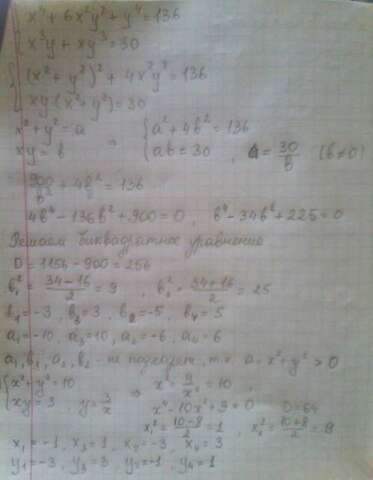 x⁴ + 6x²y² + y⁴ = 136
x³y + xy³ = 30
(x² + y²)² + 4x²y² = 136
xy(x² + y²) = 30
x² + y² = a ⇒ a² + 4b² = 136
xy = b ab = 30, a = 30/b (b ≠ 0)
900/b² + 4b² = 136
4b⁴ - 136b² + 900 = 0, b⁴ - 34b² + 225 = 0
Решаем биквадратное уравнение
D = 1156 - 900 = 256
b₁² = (34-16)/2 = 9, b₂² = (34+16)/2 = 25
b₁ = -3, b₃ = 3, b₂ = -5, b₄ = 5
a₁ = -10, a₃ = 10, a₂ = -6, a₄ = 6
a₁, b₁, a₂, b₂ - не подходят, т.к. a = x² + y² > 0
x² + y² = 10 ⇒ x² + 9/x² = 10,
xy = 3, y = 3/x x⁴ - 10x² + 9 = 0 D = 64
x₁² = (10-8)/2 = 1, x₂² = (10+8)/2 = 9
x₁ = -1, x₃ = 1, x₂ = -3, x₄ = 3
y₁ = -3, y₃ = 3, y₂ = -1, y₄ = 1